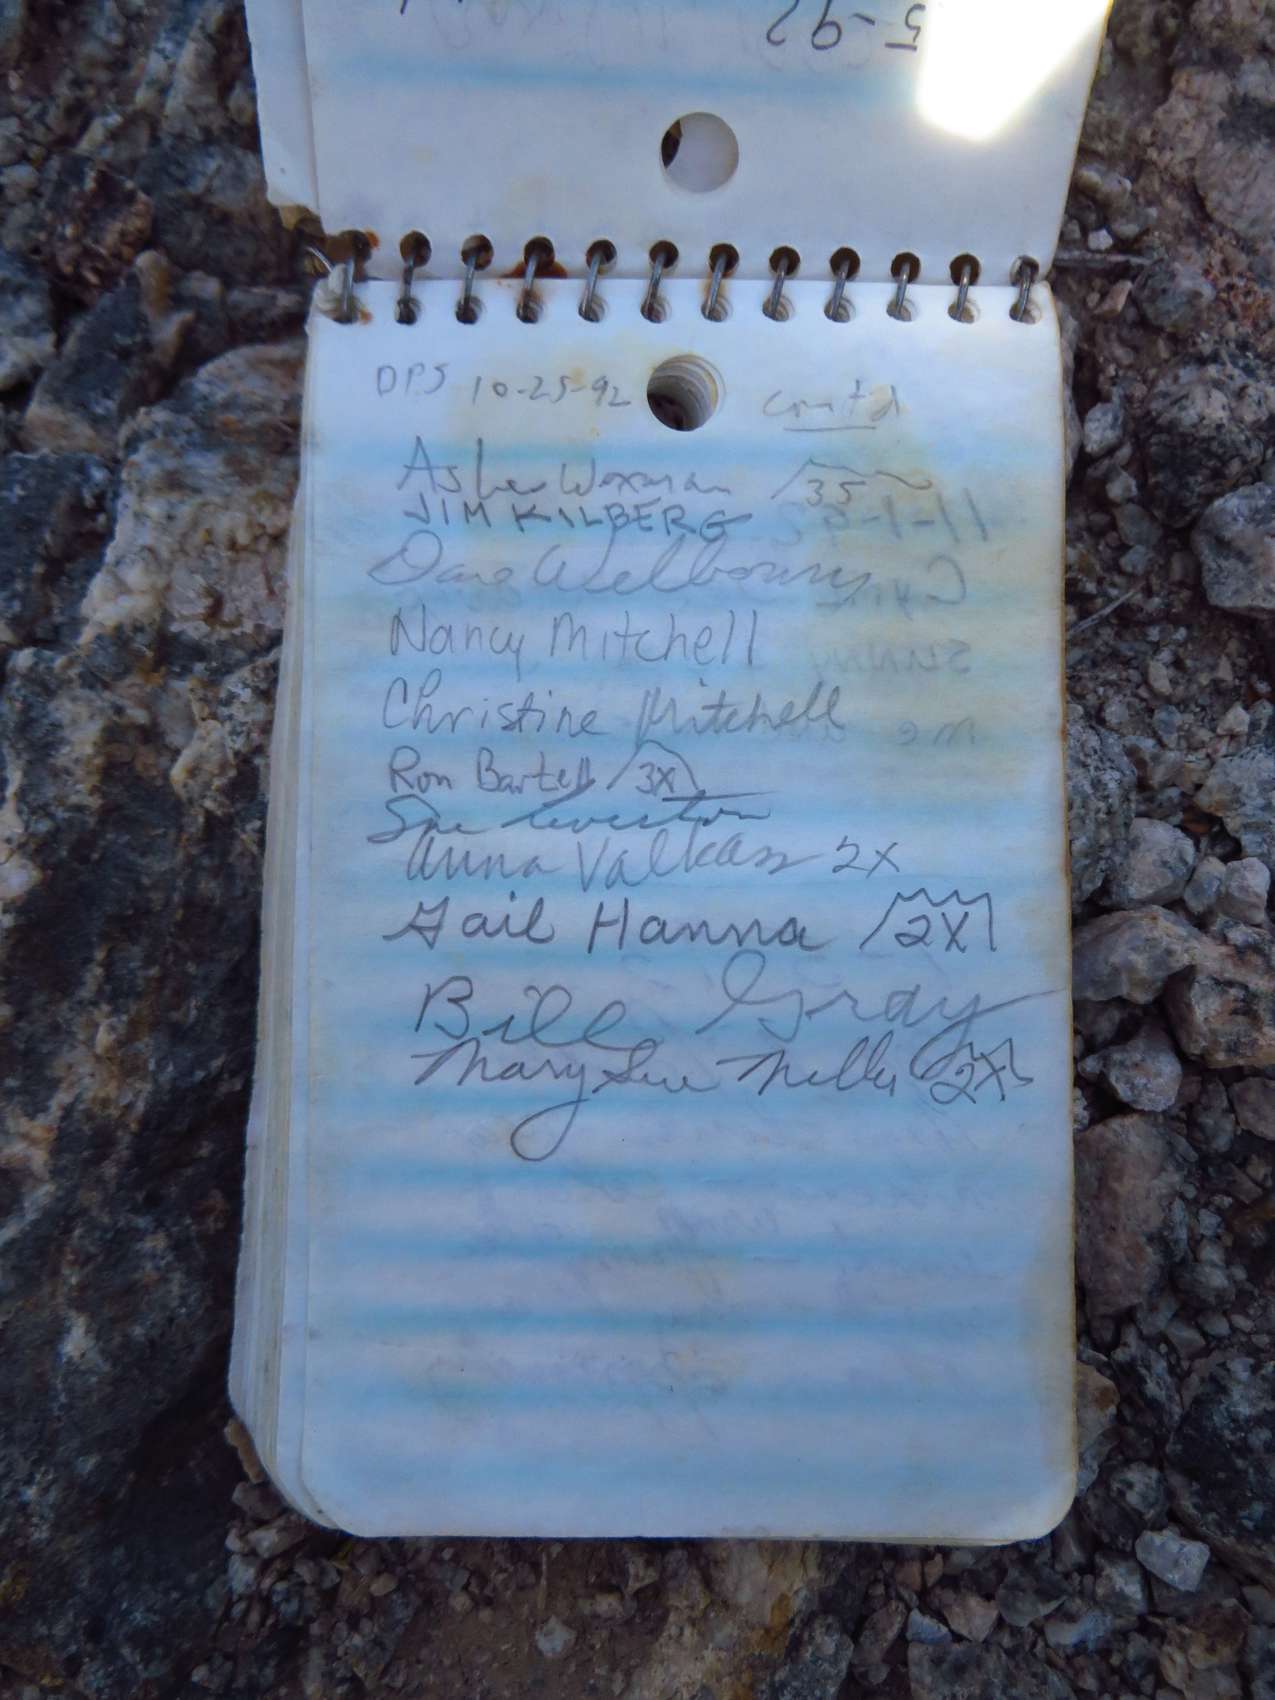 5-92
DPS 10-25-92 cont'd
Ashe Woxman 35
JIM KILBERG
Dave Welbourn
Nancy Mitchell
Christine Mitchell
Ron Bartell 3X
Sue Leverton
Anna Valkass 2X
Gail Hanna 2X
Bill Gray
Mary Sue Miller 2X